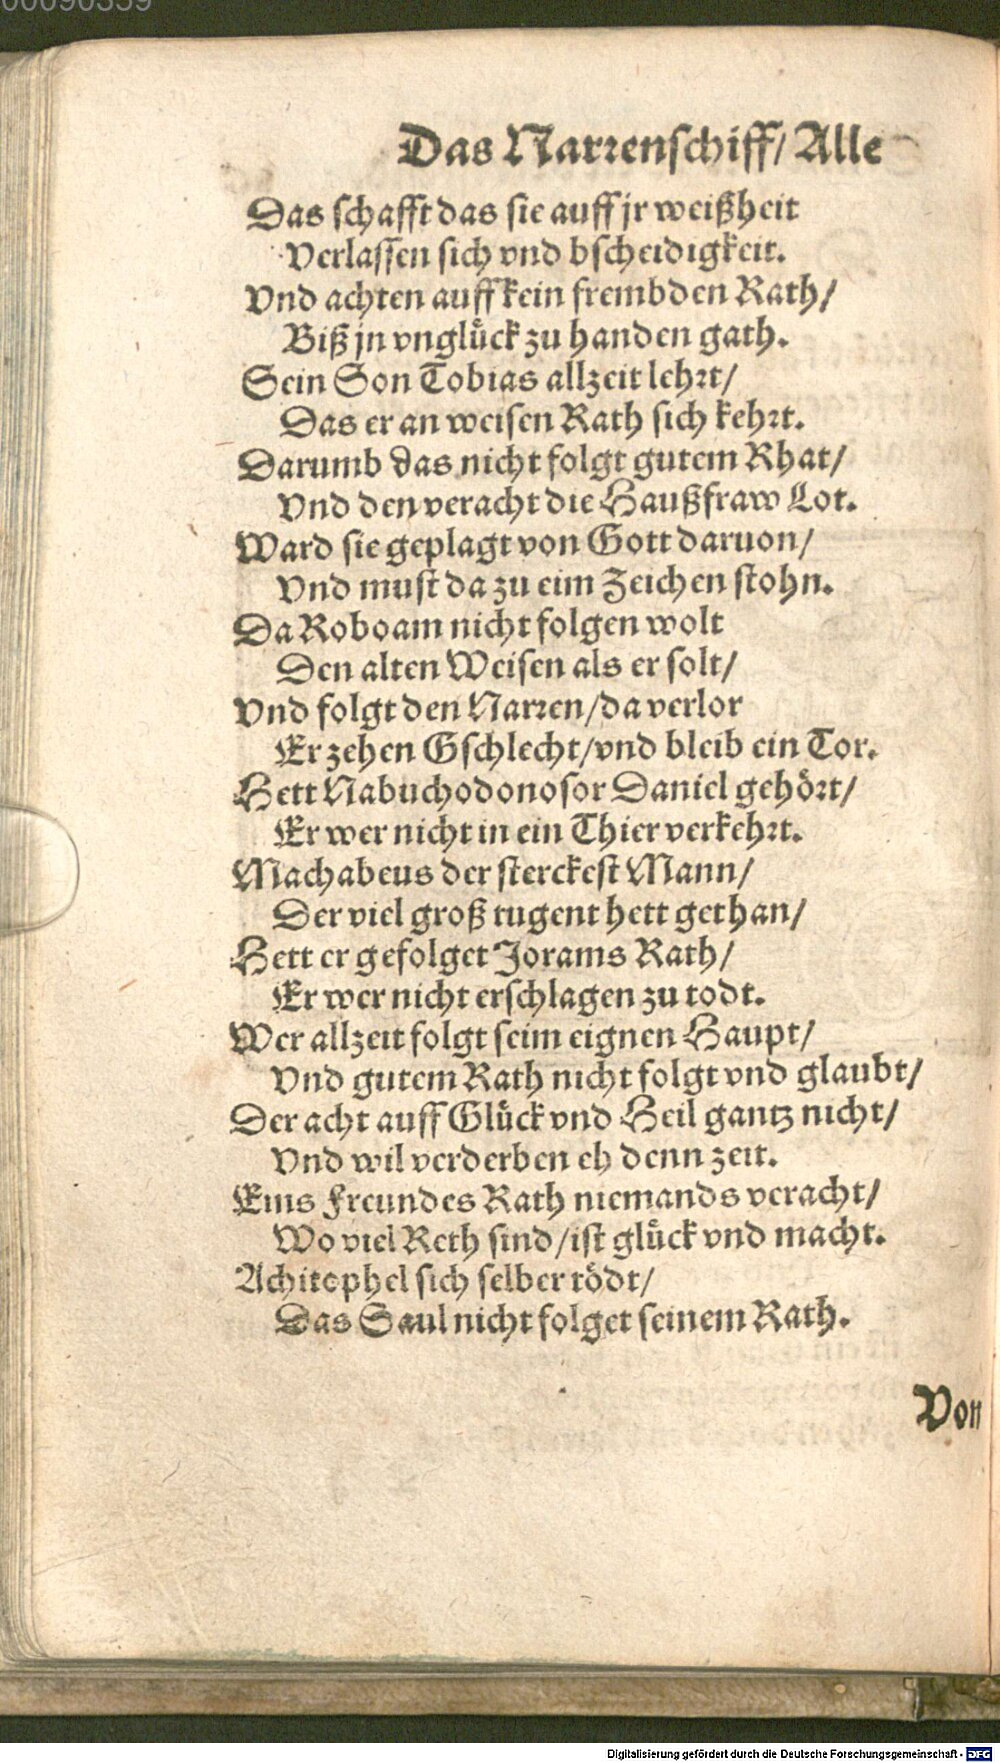 00090359
Das Narrenschiff/ Alle
Das schafft das sie auff jr weißheit
Verlassen sich vnd bscheidigkeit.
Vnd achten auff kein frembden Rath/
Biß jn vnglück zu handen gath.
Sein Son Tobias allzeit lehrt/
Das er an weisen Rath sich kehrt.
Darumb das nicht folgt gutem Rhat/
Vnd den veracht die Haußfraw Lot.
Ward sie geplagt von Gott daruon/
Vnd must da zu eim Zeichen stohn.
Da Roboam nicht folgen wolt
Den alten Weisen als er solt/
Vnd folgt den Narren/da verlor
Er zehen Gschlecht/vnd bleib ein Tor.
Hett Nabuchodonosor Daniel gehört/
Er wer nicht in ein Thier verkehrt.
Machabeus der sterckest Mann/
Der viel groß tugent hett gethan/
Hett er gefolget Jorams Rath/
Er wer nicht erschlagen zu todt.
Wer allzeit folgt seim eignen Haupt/
Vnd gutem Rath nicht folgt vnd glaubt/
Der acht auff Glück vnd Heil gantz nicht/
Vnd wil verderben eh denn zeit.
Eins Freundes Rath niemands veracht/
Wo viel Reth sind/ist glück vnd macht.
Achitophel sich selber tödt/
Das Saul nicht folget seinem Rath.
Von
Digitalisierung gefördert durch die Deutsche Forschungsgemeinschaft - DFG